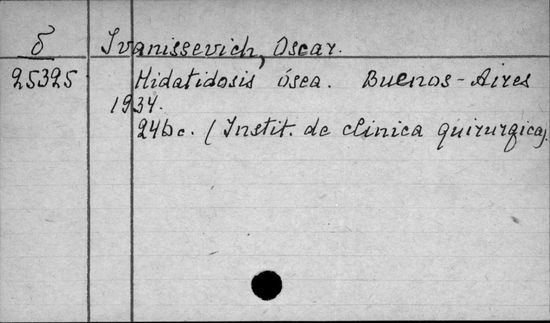 δ Ivanissevich, Oscar.
25325 Hidatidosis ósea. Buenos-Aires
1934.
246 c. (Instit. de clinica quirurgica).